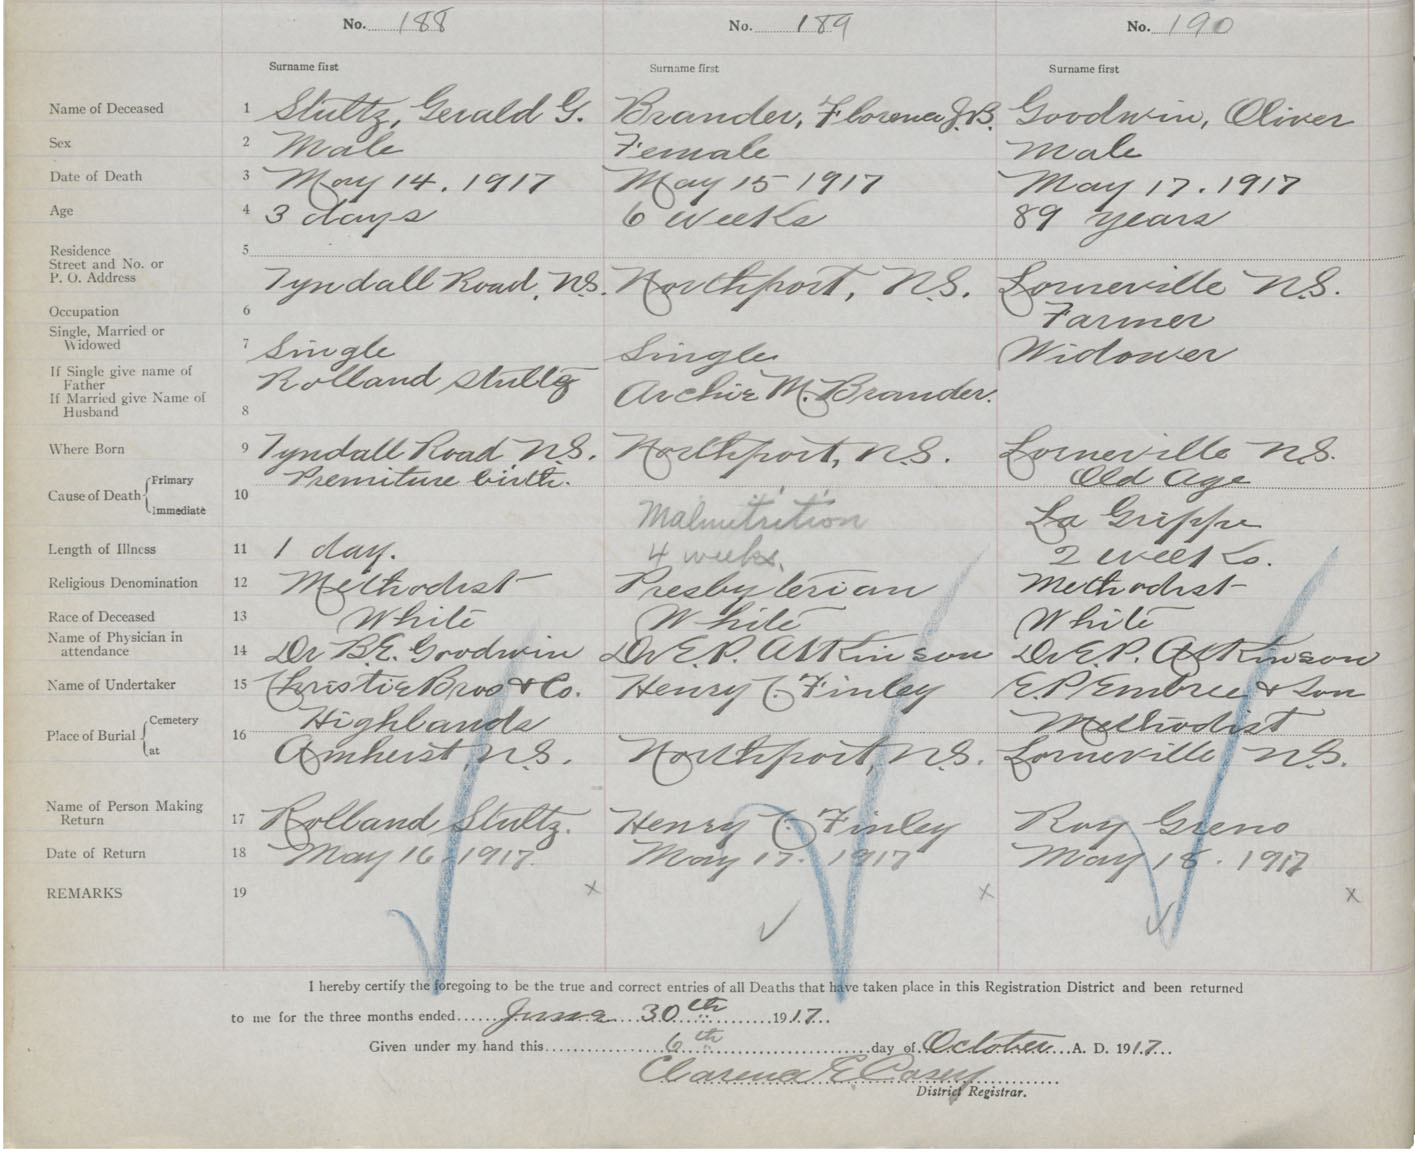 No. 188 No. 189 No. 190
Surname first Surname first Surname first
Name of Deceased 1 Stultz, Gerald G. Brander, Florence J.B. Goodwin, Oliver
Sex 2 Male Female Male
Date of Death 3 May 14. 1917 May 15 1917 May 17. 1917
Age 4 3 days 6 weeks 89 years
Residence 5
Street and No. or
P. O. Address Tyndall Road, N.S. Northport, N.S. Lorneville N.S.
Occupation 6 Farmer
Single, Married or
Widowed 7 Single Single Widower
If Single give name of
Father Rolland Stultz Archie M. Brander.
If Married give Name of
Husband 8
Where Born 9 Tyndall Road N.S. Northport, N.S. Lorneville N.S.
Cause of Death Primary 10 Premiture birth. Old Age
Immediate Malnutrition La Grippe
Length of Illness 11 1 day. 4 weeks. 2 weeks.
Religious Denomination 12 Methodist Presbyterian Methodist
Race of Deceased 13 White White White
Name of Physician in
attendance 14 Dr B.E. Goodwin Dr E.P. Atkinson Dr E.P. Atkinson
Name of Undertaker 15 Christie Bros & Co. Henry C. Finley E.P. Embree & Son
Place of Burial Cemetery 16 Highlands Methodist
at Amherst, N.S. Northport, N.S. Lorneville N.S.
Name of Person Making
Return 17 Rolland Stultz. Henry C. Finley Roy Greno
Date of Return 18 May 16, 1917. May 17. 1917 May 18. 1917
REMARKS 19 x x x
I hereby certify the foregoing to be the true and correct entries of all Deaths that have taken place in this Registration District and been returned
to me for the three months ended June 30th 1917.
Given under my hand this 6th day of October A. D. 1917.
Clarence E. Casey
District Registrar.